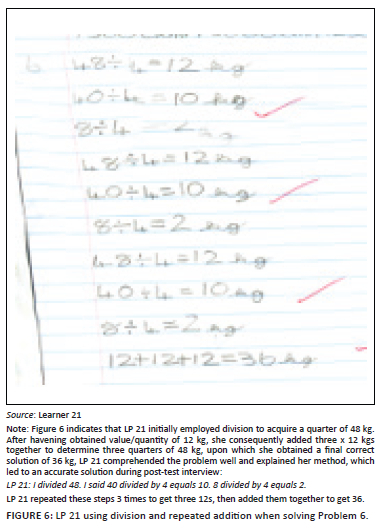 6 48÷4=12 kg
40÷4=10 kg
8÷4=2kg
48÷4=12 kg
40÷4=10 kg
8÷4=2 kg
48÷4=12 kg
40÷4=10 kg
8÷4=2 kg
12+12+12=36 kg
Source: Learner 21
Note: Figure 6 indicates that LP 21 initially employed division to acquire a quarter of 48 kg.
After havening obtained value/quantity of 12 kg, she consequently added three x 12 kgs
together to determine three quarters of 48 kg, upon which she obtained a final correct
solution of 36 kg, LP 21 comprehended the problem well and explained her method, which
led to an accurate solution during post-test interview:
LP 21: I divided 48. I said 40 divided by 4 equals 10. 8 divided by 4 equals 2.
LP 21 repeated these steps 3 times to get three 12s, then added them together to get 36.
FIGURE 6: LP 21 using division and repeated addition when solving Problem 6.